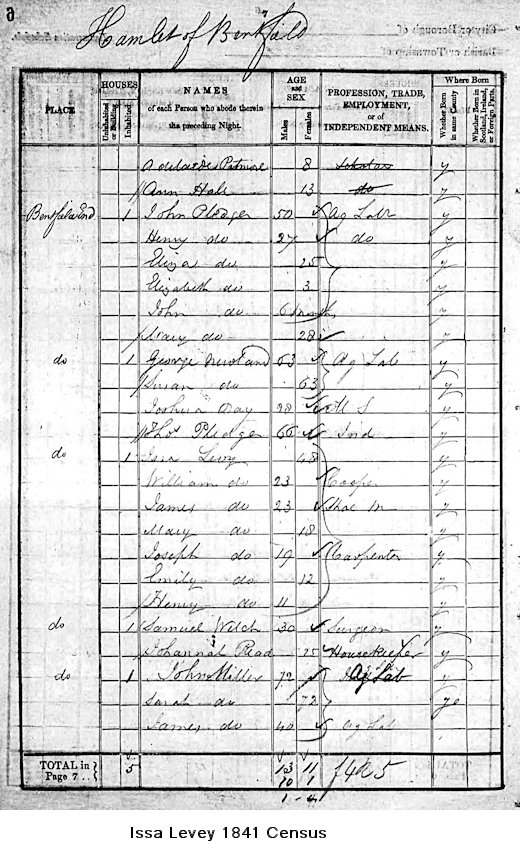 6
City or Borough of
Parish or Township of
Hamlet of Bentfield
PLACE
HOUSES
Uninhabited or Building
Inhabited
NAMES
of each Person who abode therein
the preceding Night.
AGE
and
SEX
Males
Females
PROFESSION, TRADE,
EMPLOYMENT,
or of
INDEPENDENT MEANS.
Where Born
Whether Born in same County
Whether Born in Scotland, Ireland, or Foreign Parts.
Adelaide Patmore 8 Scholar y
Ann Hall 13 do y
Bentfield End 1 John Pledger 50 Ag Labr y
Henry do 27 do y
Eliza do 25 y
Elizabeth do 3 y
John do 6 months y
Mary do 28 y
do 1 George Newland 63 Ag Lab y
Susan do 63 y
Joshua Day 28 M S y
Thos Pledger 66 Ind y
do 1 Issa Levy 48 y
William do 23 Cooper y
James do 23 Shoe M y
Mary do 18 y
Joseph do 19 Carpenter y
Emily do 12 y
Henry do 11 y
do 1 Samuel Welch 30 Surgeon y
Johannah Read 25 Housekeeper y
do 1 John Miller 72 Ag Lab y
Sarah do 72
James do 40 Ag Lab
TOTAL in
Page 7
5 13 11
10 1
Issa Levey 1841 Census